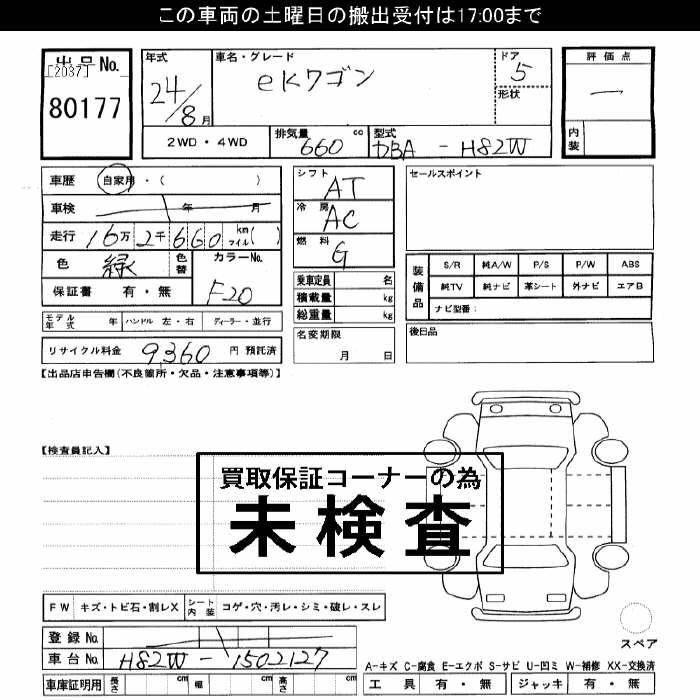 この車両の土曜日の搬出受付は17:00まで
出品No.
[2037]
80177
年式
24/8月
車名・グレード
eKワゴン
ドア
5
形状
評価点
―
内装
2WD・4WD
排気量
660 cc
型式
DBA - H82W
車歴 自家用・( )
車検 年 月
走行 16万2千660 km マイル( )
色 緑 色替
カラーNo.
F20
保証書 有・無
モデル年式 年 ハンドル 左・右 ディーラー・並行
リサイクル料金 9,360 円 預託済
シフト
AT
冷房
AC
燃料
G
乗車定員 名
積載量 kg
総重量 kg
名変期限
月 日
セールスポイント
装備品
S/R 純A/W P/S P/W ABS
純TV 純ナビ 革シート 外ナビ エアB
ナビ型番:
後日品
【出品店申告欄(不良箇所・欠品・注意事項等)】
【検査員記入】
買取保証コーナーの為
未検査
FW キズ・トビ石・割レX シート内装 コゲ・穴・汚レ・シミ・破レ・スレ
登録No.
車台No. H82W - 1502127
車庫証明用 長さ cm 幅 cm 高さ cm
スペア
A-キズ C-腐食 E-エクボ S-サビ U-凹ミ W-補修 XX-交換済
工具 有・無 ジャッキ 有・無